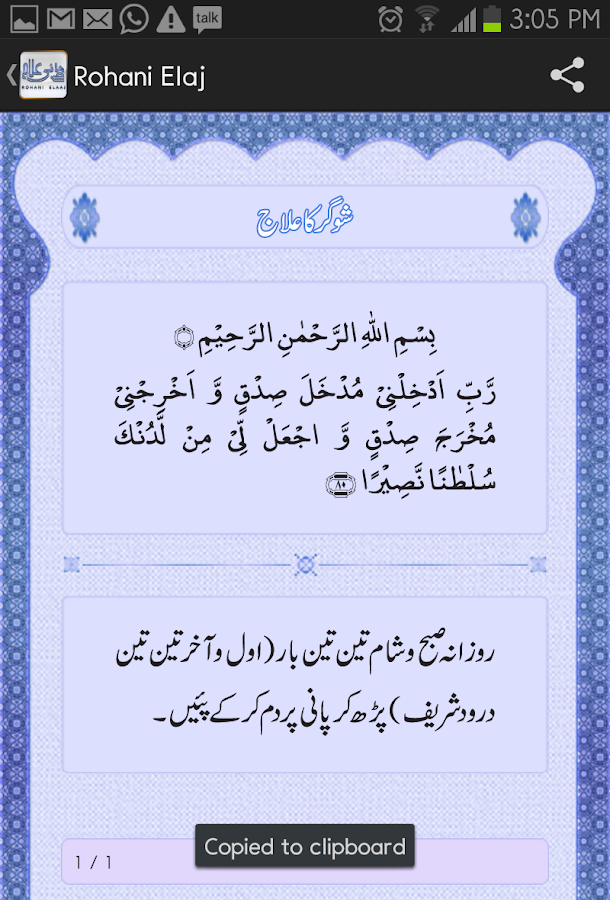 talk 3:05 PM
Rohani Elaj
شوگر کا علاج
بِسْمِ اللهِ الرَّحْمٰنِ الرَّحِيْمِ
رَّبِّ اَدْخِلْنِیْ مُدْخَلَ صِدْقٍ وَّ اَخْرِجْنِیْ
مُخْرَجَ صِدْقٍ وَّ اجْعَلْ لِّیْ مِنْ لَّدُنْكَ
سُلْطٰنًا نَّصِیْرًا ﴿۸۰﴾
روزانہ صبح و شام تین تین بار (اول و آخر تین تین
درود شریف) پڑھ کر پانی پر دم کر کے پئیں۔
Copied to clipboard
1 / 1